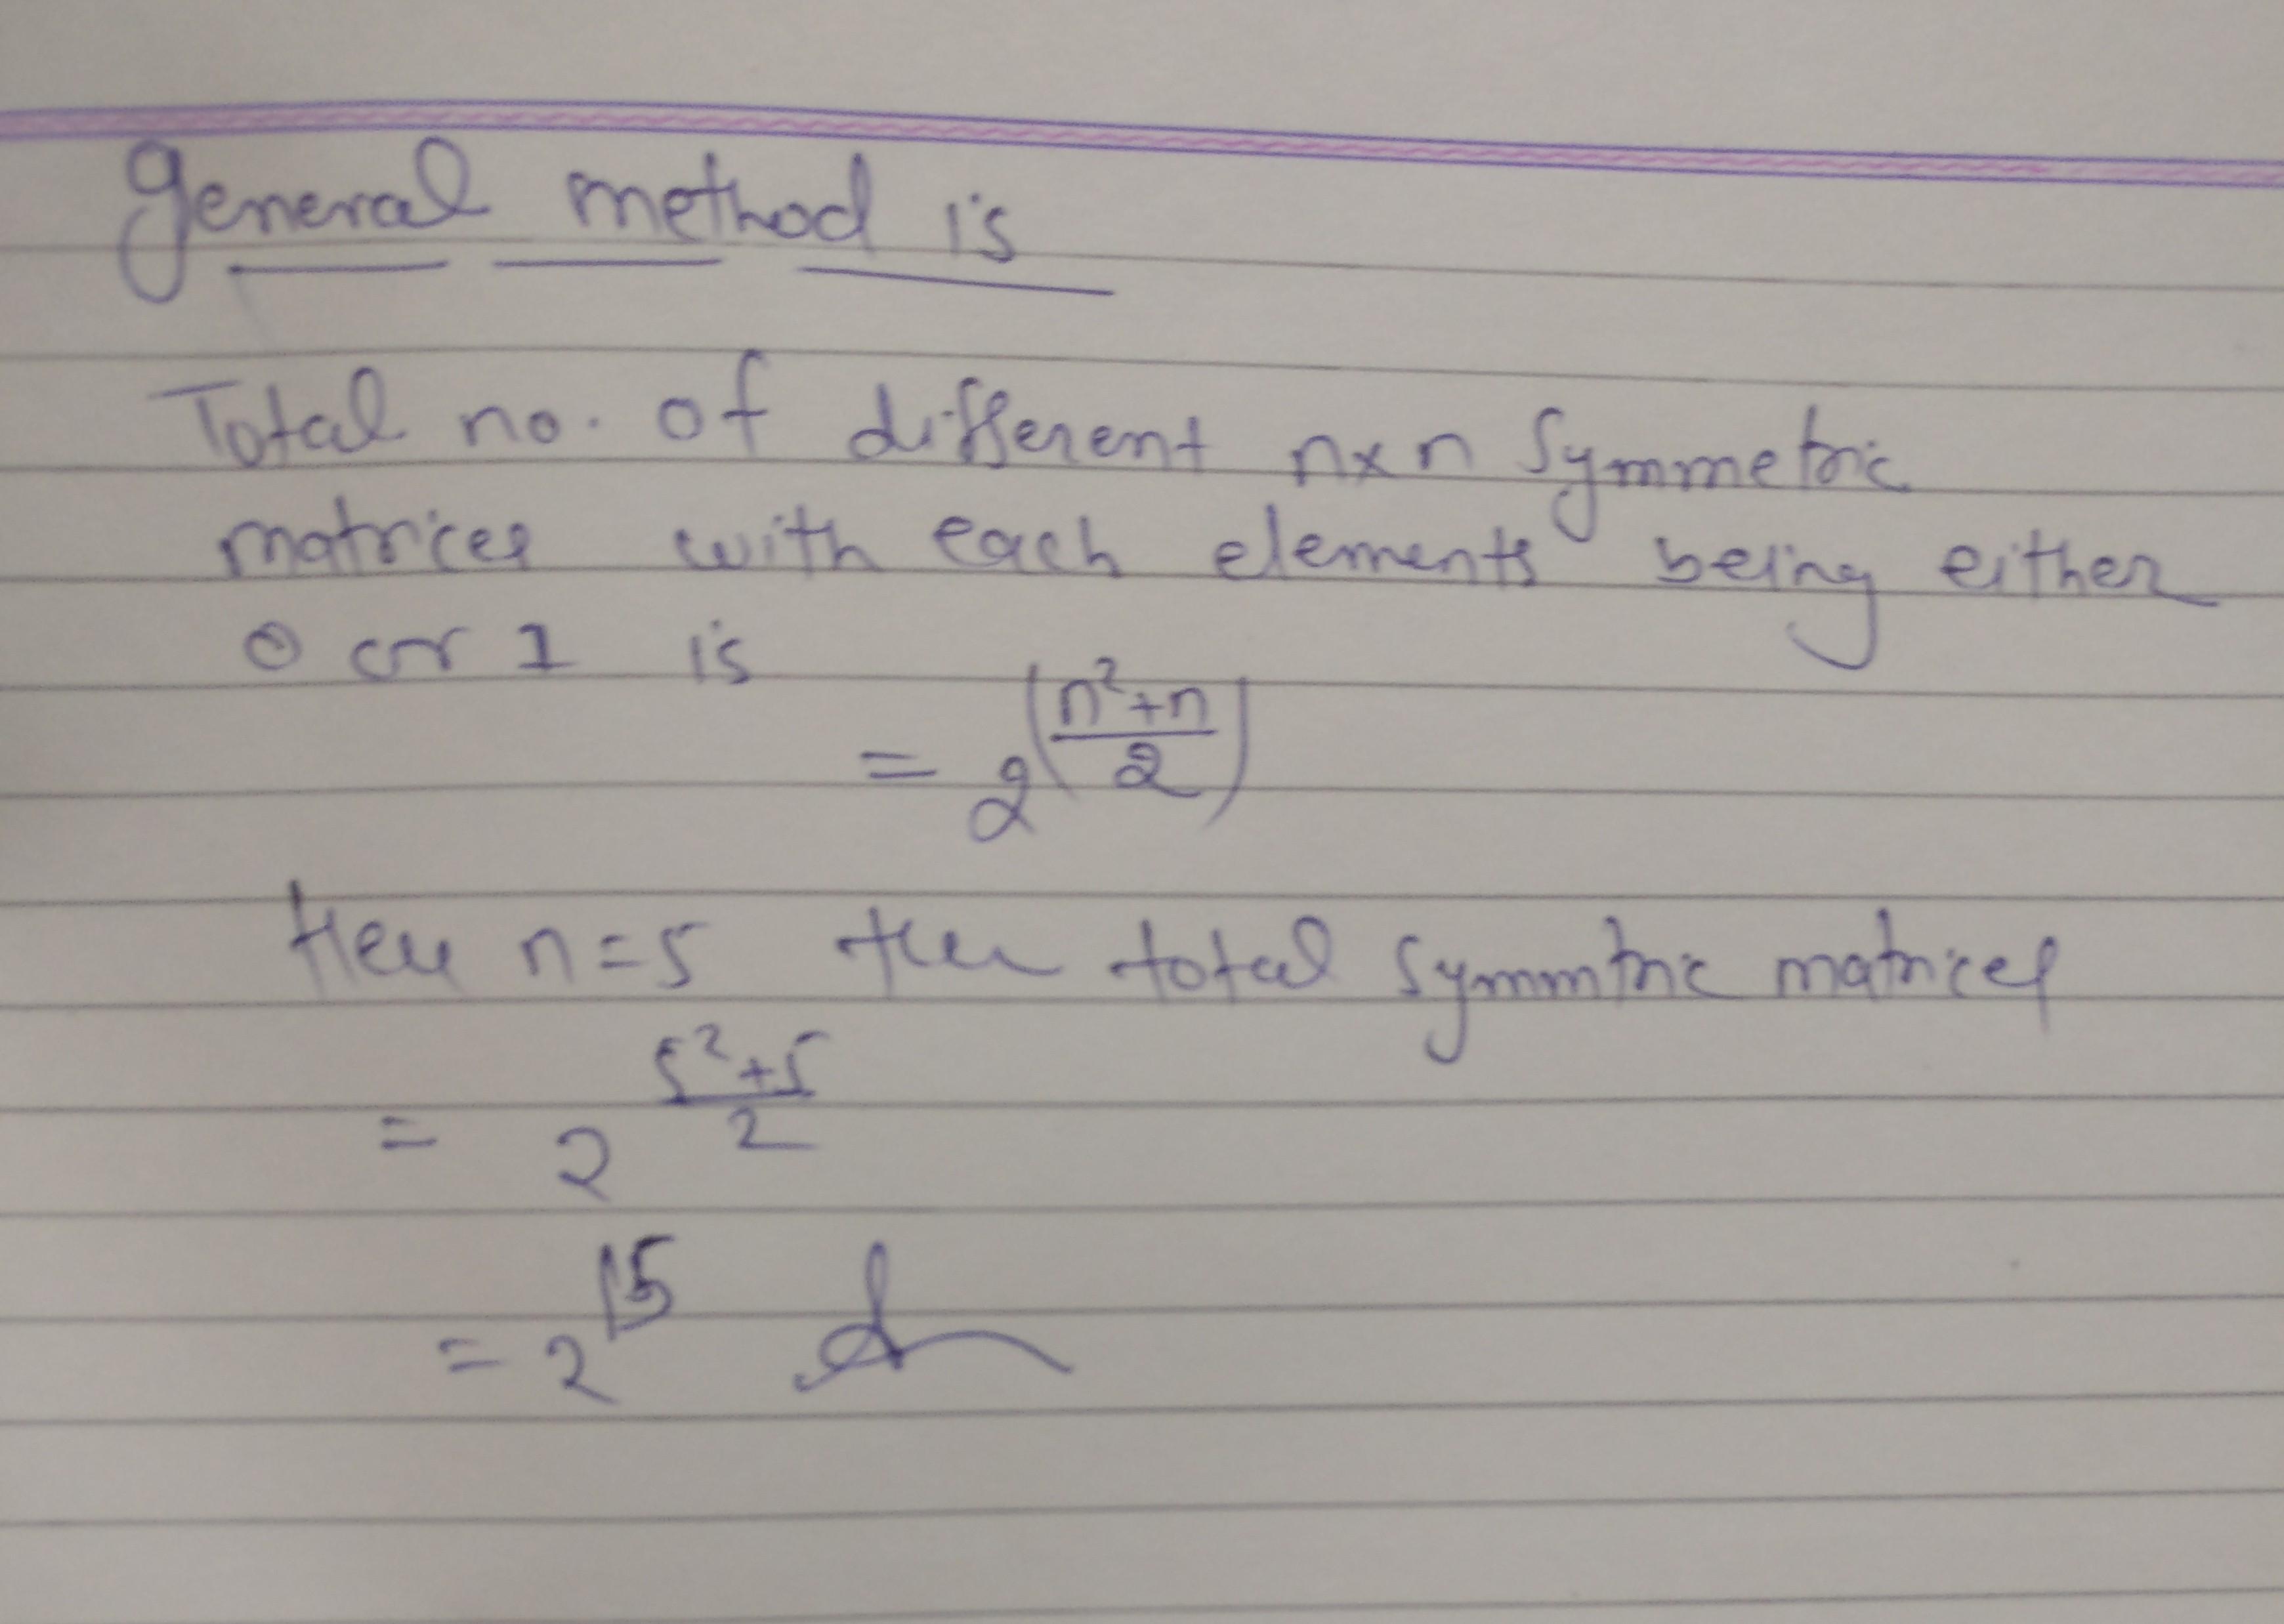 General method is
Total no. of different n×n Symmetric
matrices with each elements being either
0 or 1 is
= 2^((n²+n)/2)
Here n=5 then total symmtric matrices
= 2^((5²+5)/2)
= 2^15